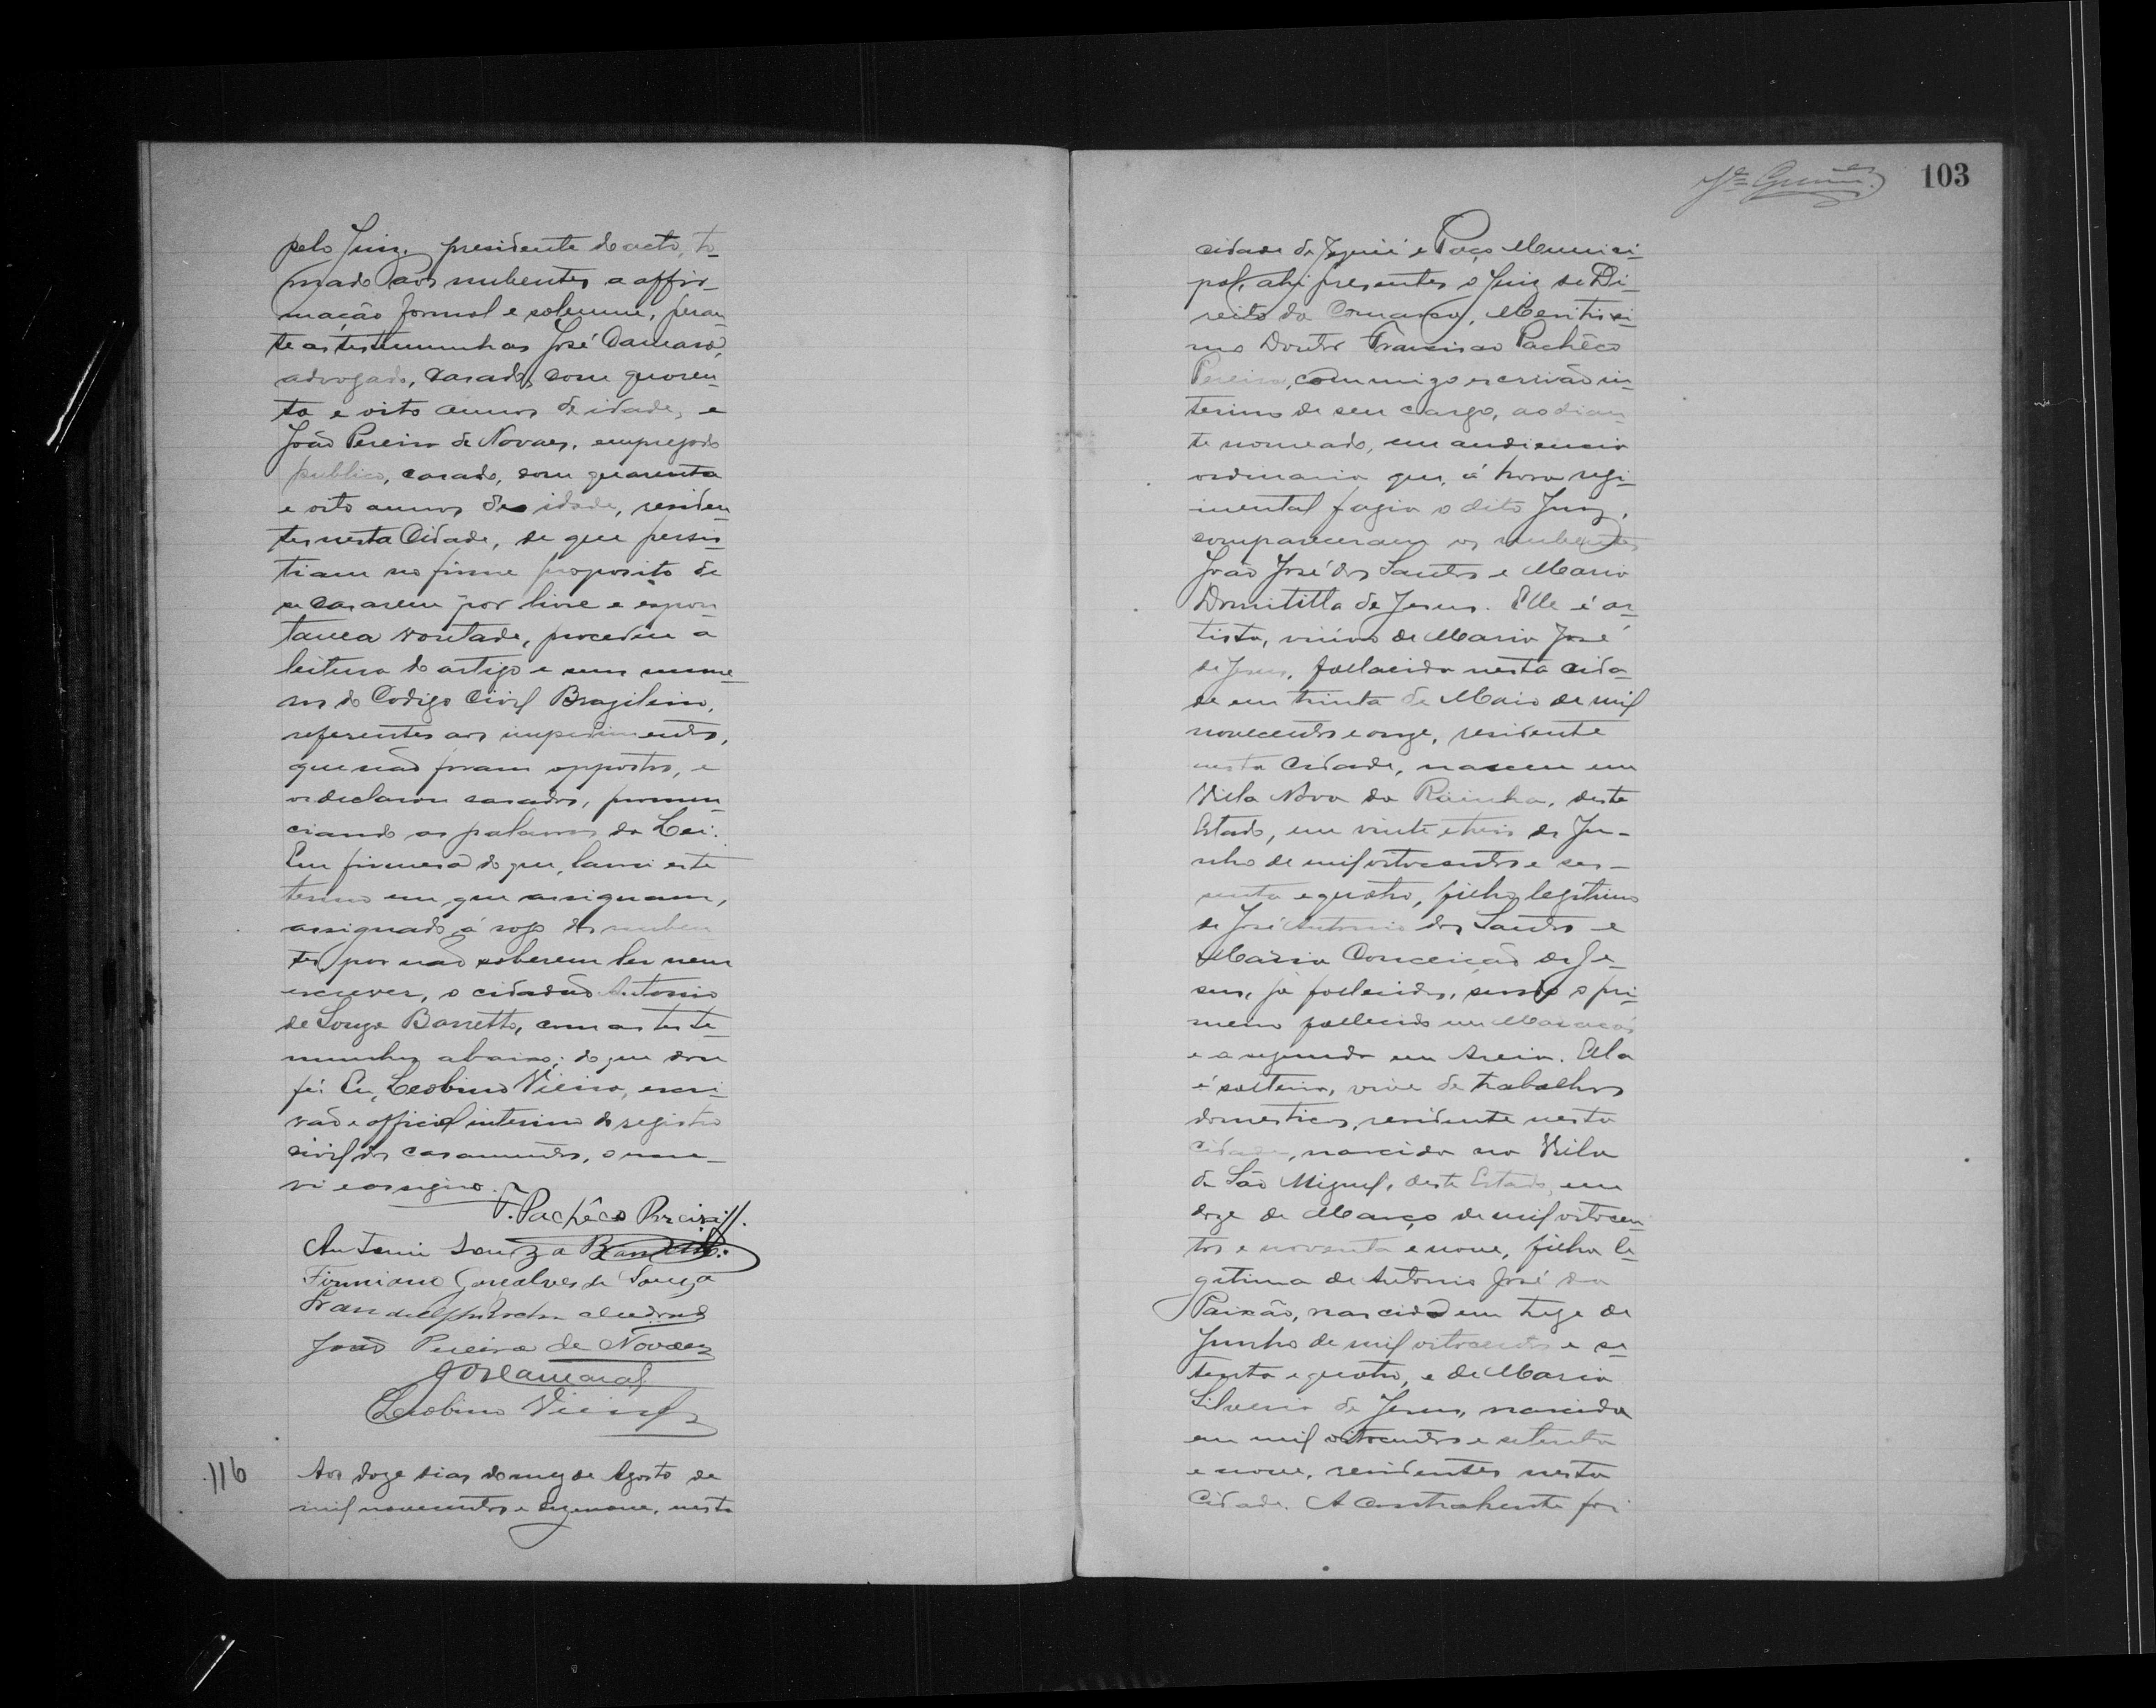 pelo Juiz, presidente do acto, to-
mado aos nubentes a affir-
mação formal e solemne, peran-
te as testemunhas José
advogado, casado, com quaren-
ta e oito annos de idade, e
João Pereira de Novaes, empregado
publico, casado, com quarenta
e oito annos de idade, residen-
tes nesta Cidade, de que persis-
tiam no firme proposito de
se casarem por livre e espon-
tanea vontade, procedeu a
leitura do artigo e seus nume-
ros do Codigo Civil Brazileiro,
referentes aos impedimentos,
que não foram oppostos, e
os declarou casados, pronun-
ciando as palavras da Lei.
Em firmesa do que, lavrei este
termo em que assignam,
assignado á rogo dos nuben-
tes, por não saberem ler nem
escrever, o cidadão Antonio
de Souza Barretto, com as teste-
munhas abaixo; do que dou
fé. Eu, Leobino Vieira, escri-
vão e official interino do registro
civil dos casamentos, o escre-
vi e assigno.
F. Pachêco Pereira
Antonio Souza Barretto.
Firmiano Gonçalves de Souza
João Pereira de Novaes
Leobino Vieira
116
Aos doze dias do mez de Agosto de
mil novecentos e dezenove, nesta
103
cidade de Jequié e Paço Munici-
pal, ahi presentes o Juiz de Di-
reito da Comarca, Meritissi-
mo Doutor Francisco Pachêco
Pereira, commigo escrivão in-
terino de seu cargo, ao dian-
te nomeado, em audiencia
ordinaria que, á hora regi-
mental fazia o dito Juiz,
compareceram os nubentes
João José dos Santos e Maria
Domitilla de Jesus. Elle é ar-
tista, viúvo de Maria José
de Jesus, fallecida nesta cida-
de em trinta de Maio de mil
novecentos e onze, residente
nesta Cidade, nasceu em
Villa Nova da Rainha, deste
Estado, em vinte e tres de Ju-
nho de mil oitocentos e ses-
senta e quatro, filho legitimo
de José Antonio dos Santos e
Maria Conceição de Je-
sus, já fallecidos, sendo o pri-
meiro fallecido em Maracás
e a segunda em Areia. Ella
é solteira, vive de trabalhos
domesticos, residente nesta
cidade, nascida na Villa
de São Miguel, deste Estado, em
doze de Março de mil oitocen-
tos e noventa e nove, filha le-
gitima de Antonio José da
Paixão, nascido em treze de
Junho de mil oitocentos e se-
tenta e quatro, e de Maria
Silveria de Jesus, nascida
em mil oitocentos e setenta
e nove, residentes nesta
Cidade. A Contrahente foi